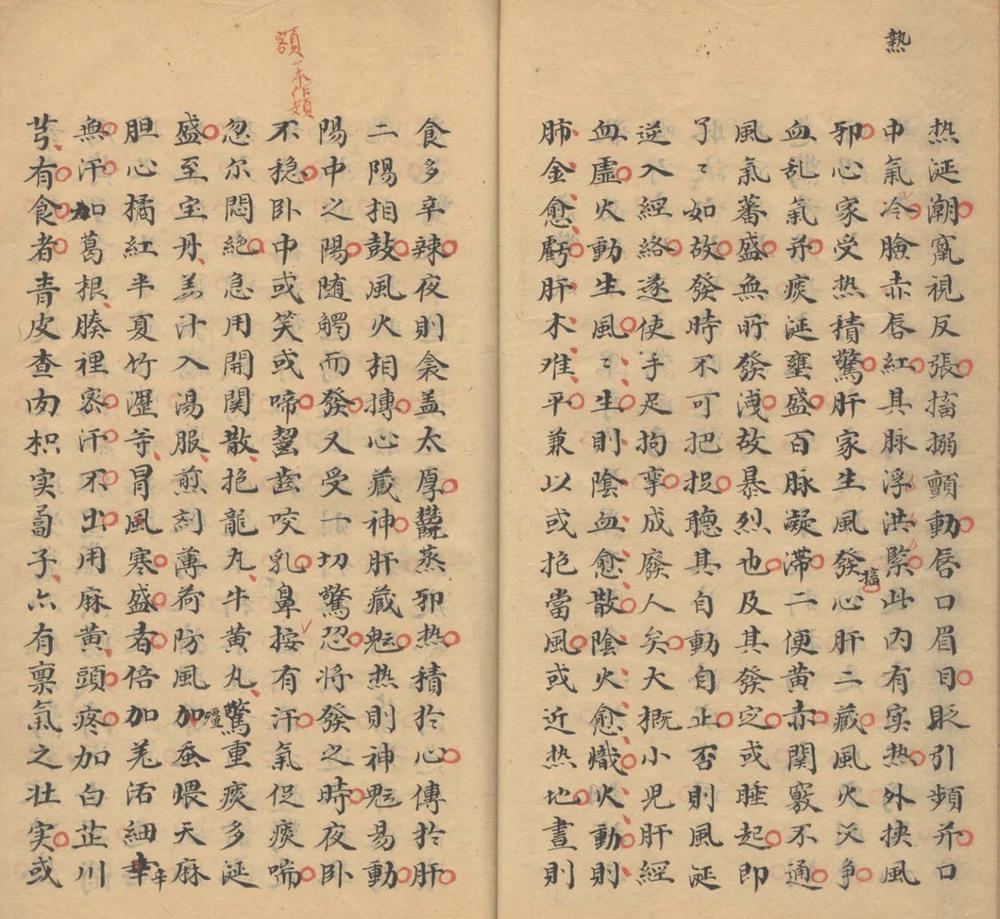 熱
热涎潮竄視反張搐搦顫動唇口眉目眨引頻并口
中氣冷臉赤唇紅其脉浮洪緊此内有实热外挟風
邪心家受热積驚肝家生風發搐心肝二藏風火交争
血乱氣并痰涎壅盛百脉凝滞二便黄赤關竅不通
風氣蕃盛無所發洩故暴烈也及其發定或睡起即
了〻如故發時不可把捉聽其自動自止否則風涎
逆入經絡遂使手足拘攣成廢人矣大概小児肝經
血虛火動生風〻生則陰血愈散陰火愈熾火動則
肺金愈虧肝木难平兼以或抱當風或近热地晝則
額一本作類
食多辛辣夜則衾盖太厚鬱蒸邪热積於心傳於肝
二陽相鼓風火相摶心藏神肝藏魂热則神魂易動
陽中之陽随觸而發又受一切驚忍将發之時夜卧
不稳卧中或笑或啼齧齒咬乳鼻按有汗氣促痰喘
忽尔悶絶急用開関散抱龍丸牛黄丸驚重痰多涎
盛至宝丹姜汁入湯服煎剂薄荷防風加殭蚕煨天麻
胆心橘紅半夏竹瀝等冐風寒盛者倍加羌活細辛
無汗加葛根腠裡密汗不出用麻黄頭疼加白芷川
芎有食者青皮查肉枳实蔔子亦有禀氣之壮实或